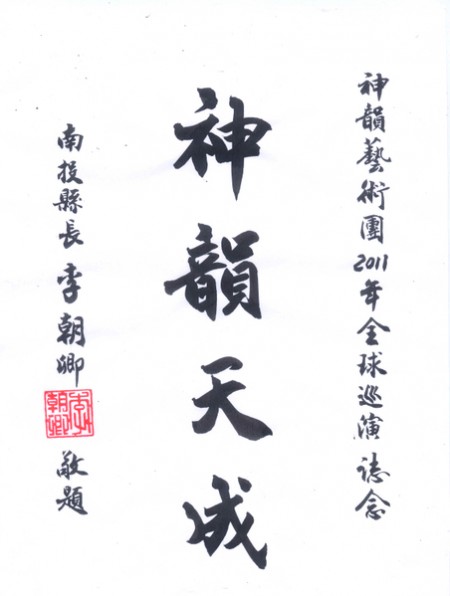 神韻藝術團2011年全球巡演 誌念
神韻天成
南投縣長 李朝卿 敬題
李朝卿